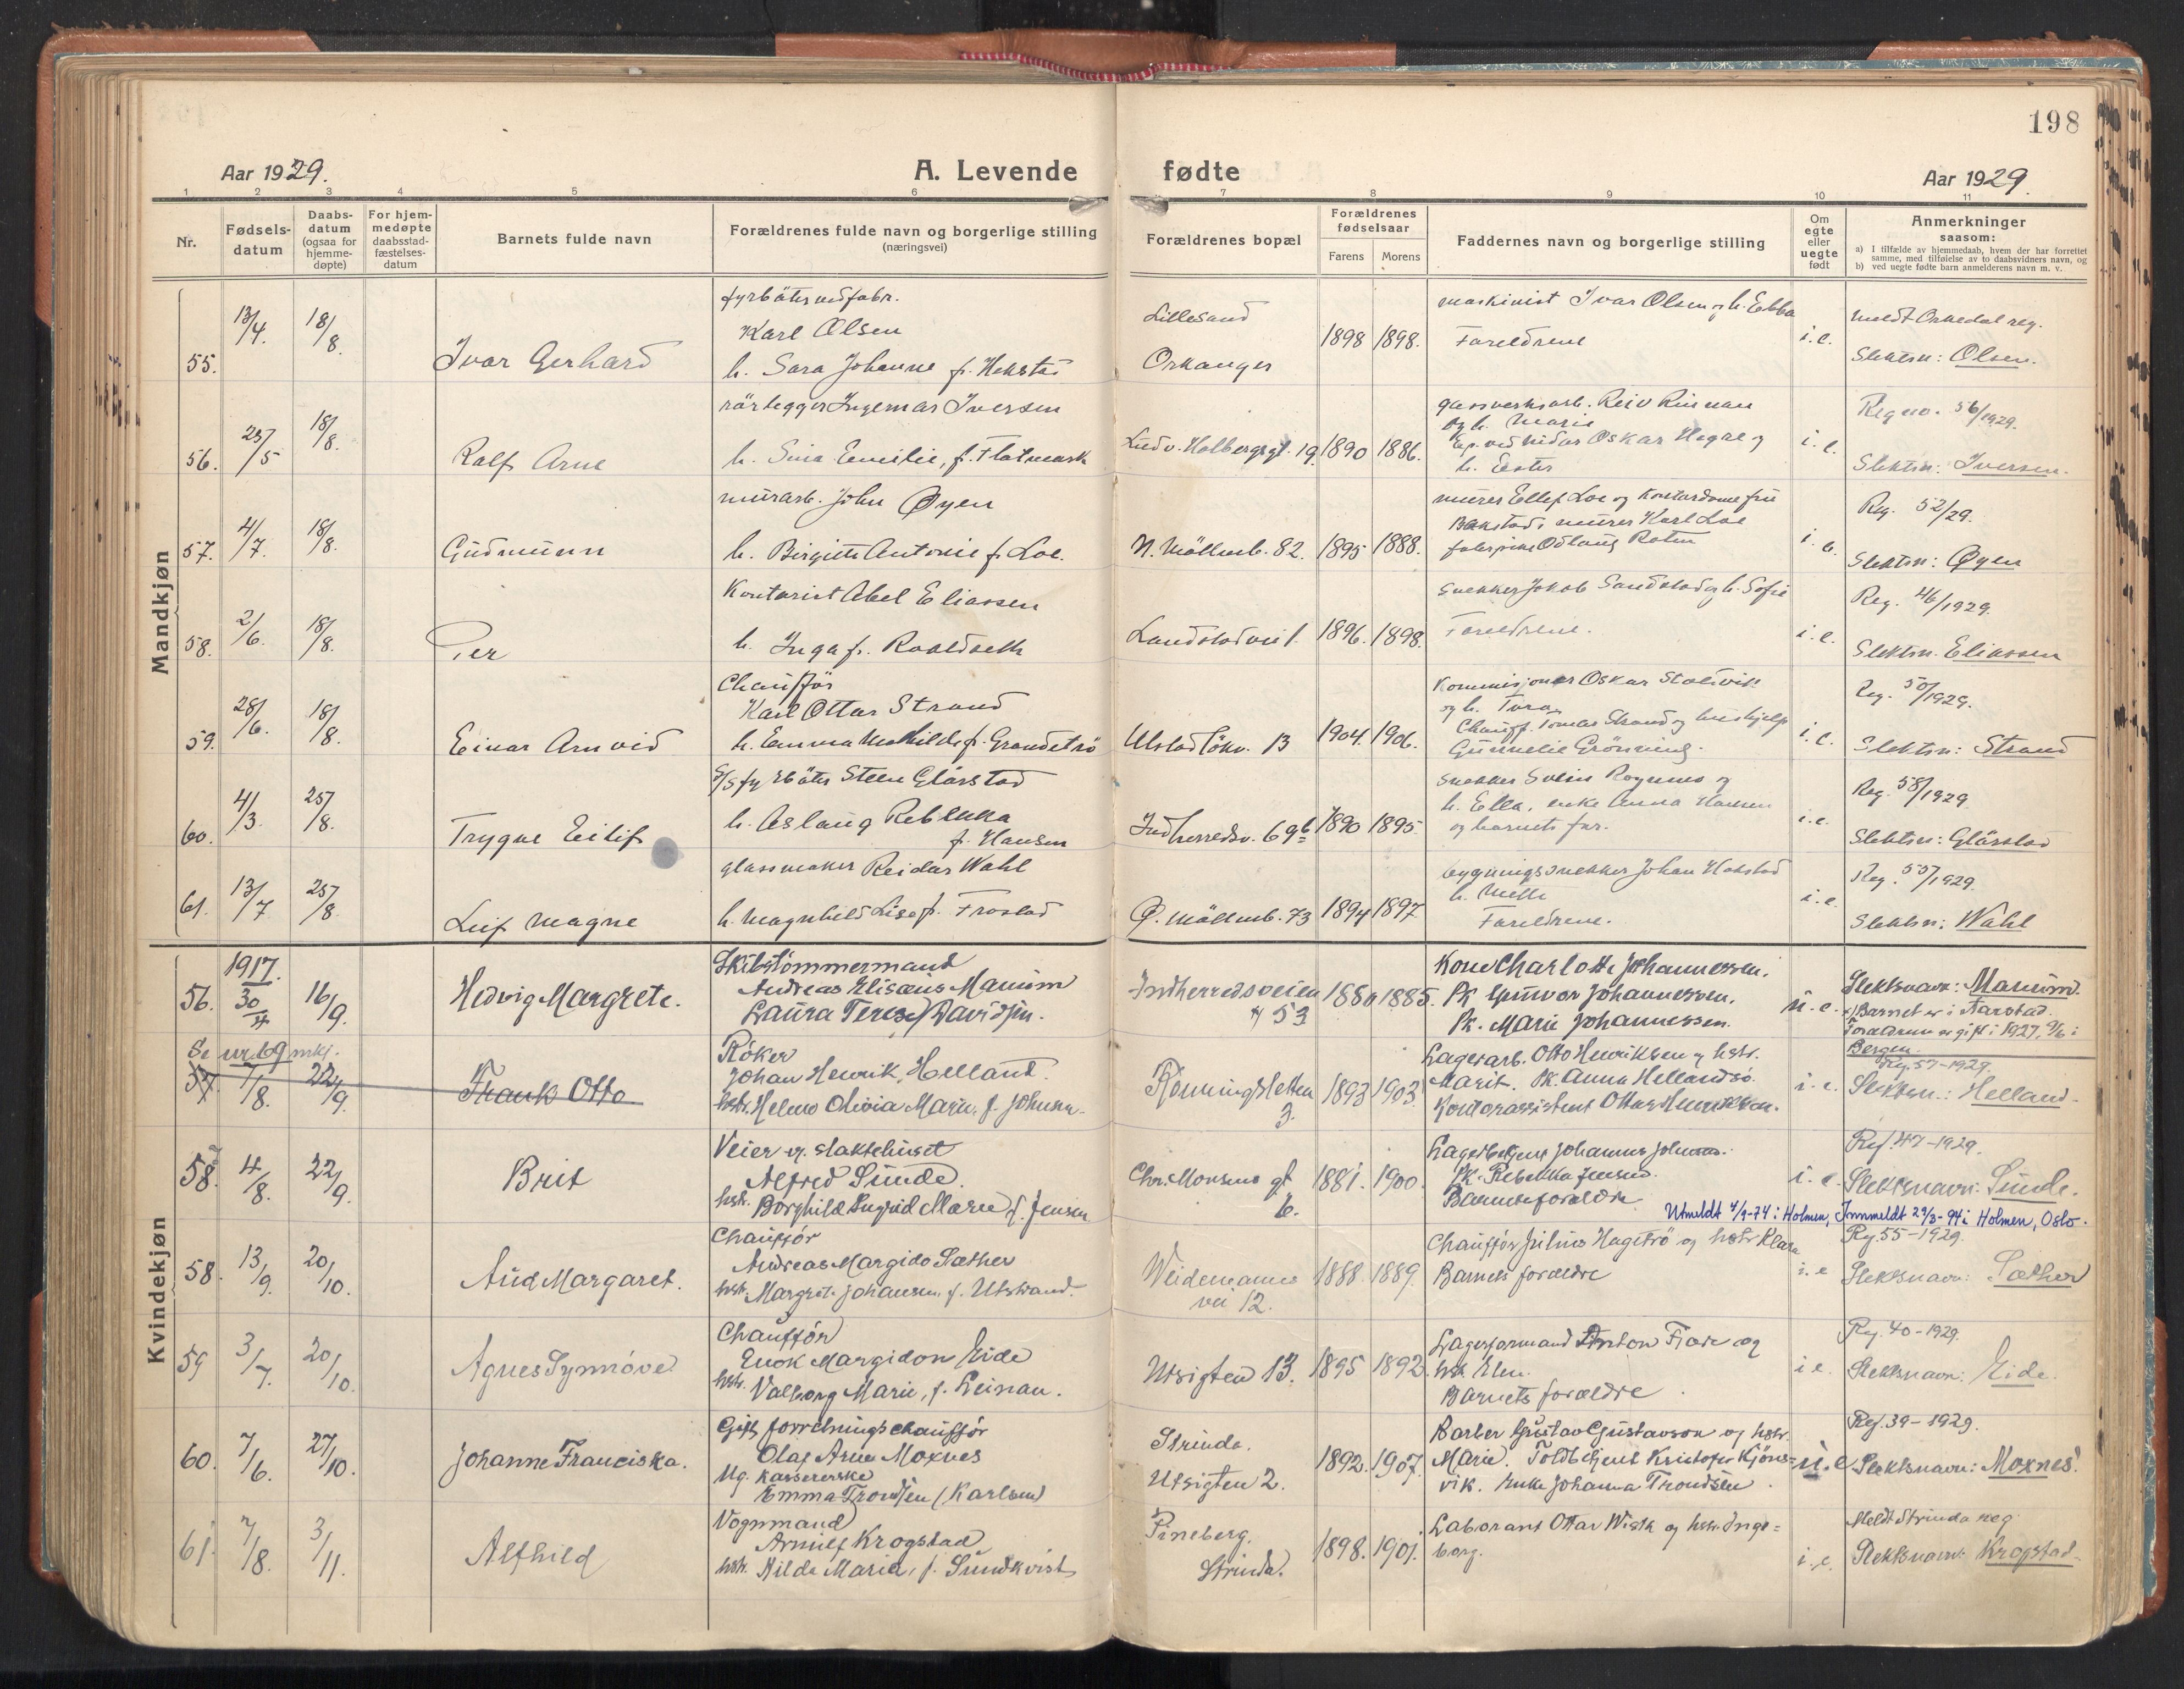 198
Aar 1929.
A. Levende fødte
Aar 1929
1 2 3 4 5 6 7 8 9 10 11
Nr.
Fødsels-
datum
Daabs-
datum
(ogsaa for
hjemme-
døpte)
For hjem-
medøpte
daabsstad-
fæstelses-
datum
Barnets fulde navn
Forældrenes fulde navn og borgerlige stilling
(næringsvei)
Forældrenes bopæl
Forældrenes
fødselsaar
Farens Morens
Faddernes navn og borgerlige stilling
Om
egte
eller
uegte
født
Anmerkninger
saasom:
a) I tilfælde av hjemmedaab, hvem der har forrettet
samme, med tilføielse av to daabsvidners navn, og
b) ved uegte fødte barn anmelderens navn m. v.
Mandkjøn
55. 13/4. 18/8. Ivar Gerhard
fyrböter ved fabr.
Karl Olsen
h. Sara Johanne f. Hekstad
Lillesand
Orkanger
1898 1898.
maskinist Ivar Olsen og h. Ebba
Foreldrene
i. e.
meldt Orkedal reg.
Slektsn: Olsen.
56. 25/5 18/8. Ralf Arne
rörlegger Ingemar Iversen
h. Sina Emilie, f. Flatmark
Ludv. Holbergsgt. 19. 1890 1886.
gassverksarb. Reiv Rinnan
og h. Marie
Oskar Hegre og
h. Ester
i. e.
Reg no. 56/1929.
Slektsn: Iversen.
57. 4/7. 18/8. Gudmunn
murarb. John Øyen
h. Birgitte Antonie f. Loe.
N. Möllenb. 82. 1895 1888.
murer Ellef Loe og kontordame frk
Bakstad, murer Karl Loe
i. e.
Reg. 52/29.
Slektsn: Øyen
58. 2/6. 18/8. Per
Kontorist Abel Eliassen
h. Inga f. Roaldseth
Landstadvei 1. 1896. 1898.
Snekker Jakob Sandstad og h. Sofie
Foreldrene.
i. e.
Reg. 46/1929.
Slektsn. Eliassen
59. 28/6. 18/8. Einar Arnvid
Chaufför
Karl Ottar Strand
h. Emma Mathilde f. Grandetrö
Ulstadlökv. 13 1904. 1906.
Kommisjonær Oskar Stolsvik
og h. Tora,
Chauff. Tomas Strand og hushjelp
Gunnelie Grönning.
i. e.
Reg. 50/1929.
Slektsn: Strand
60. 4/3. 25/8. Trygve Eilif
S/S fyrböter Steen Glärstad
h. Aslaug Rebekka
f. Hansen
Indherredsv. 69b 1890 1895
Snekker Svein Rognmo og
h. Ella, enke Anna Hansen
og barnets far.
i. e.
Reg. 58/1929.
Slektsn: Glärstad
61. 13/7 25/8. Leif Magne
glassmaker Reidar Wahl
h. Magnhild Lise f. Frostad
Ø. Möllenb. 73 1894 1897
bygningssnekker Johan Hokstad
h. Mette
Foreldrene.
i. e.
Reg. 55/1929.
Slektsn: Wahl
Kvindekjøn
56. 1917. 30/4 16/9. Hedvig Margrete.
Skibstömmermand
Andreas Elisæus Manum
Laura Terese Davidsen.
Indherredsveien
53
1880 1885.
Kone Charlotte Johannessen.
Pk. Gunvor Johannessen.
Pk. Marie Johannessen.
u. e.
Slektsnavn: Manum.
x) Barnet er i Aarstad.
Forældrene er gift i 1927, 9/6 i
Bergen.
Se nr. 69 mkj.
57. 7/8. 22/9. Frank Otto
Röker
Johan Henrik Helland.
hstr. Helene Olivia Marie, f. Johnsen.
Rönningsletten
3.
1893 1903.
Lagerarb. Otto Henriksen og hstr.
Marit. Pk. Anna Hellandsö.
Kontorassistent Ottar Henriksen.
i. e.
Reg. 57-1929.
Slektsn.: Helland.
58. 4/8. 22/9. Brit
Veier v. slaktehuset
Alfred Sunde.
hstr. Borghild Ingrid Marie f. Jensen
Chr. Monsens gt
6.
1881. 1900.
Lagerbetjent Johannes Johnsen.
Pk. Rebekka Jensen.
Barnets forældre
i. e.
Reg. 47-1929.
Slektsnavn: Sunde.
Utmeldt 4/9-74 i Holmen, Innmeldt 29/3-94 i Holmen, Oslo.
58. 13/9. 20/10. Aud Margaret.
Chauffør
Andreas Margido Sæther
hstr. Margret Johansen, f. Utstrand.
Weidemanns
vei 12.
1888. 1889.
Chauffør Julius Hagetrö og hstr Klara
Barnets forældre
i. e
Reg. 55-1929.
Slektsnavn: Sæther
59 3/7. 20/10. Agnes Synnöve
Chauffør
Enok Margidon Eide
hstr. Valborg Marie, f. Leinan.
Utsigten 13. 1895 1892
Lagerformand Anton Fjær og
hstr. Elen.
Barnets forældre.
i e.
Reg. 40-1929.
Slektsnavn: Eide.
60. 7/6. 27/10. Johanne Franciska.
Gift forretningschauffør
Olaf Arne Moxnes
Ug. kassererske
Emma Trondsen (Karlsen)
Strinda.
Utsigten 2.
1892. 1907.
Barber Gustav Gustavson og hstr.
Marie. Toldbetjent Kristofer Kjöns=
vik. Enke Johanna Trondsen.
u. e
Reg. 39-1929.
Slektsnavn: Moxnes.
61. 7/8. 3/11. Alfhild
Vognmand
Arnulf Krogstad
hstr. Hilda Marie, f. Sundkvist
Pineberg,
Strinda.
1898. 1901.
Laborant Ottar Wisth og hstr. Inge=
borg.
i. e.
Meldt Strinda reg.
Slektsnavn: Krogstad.